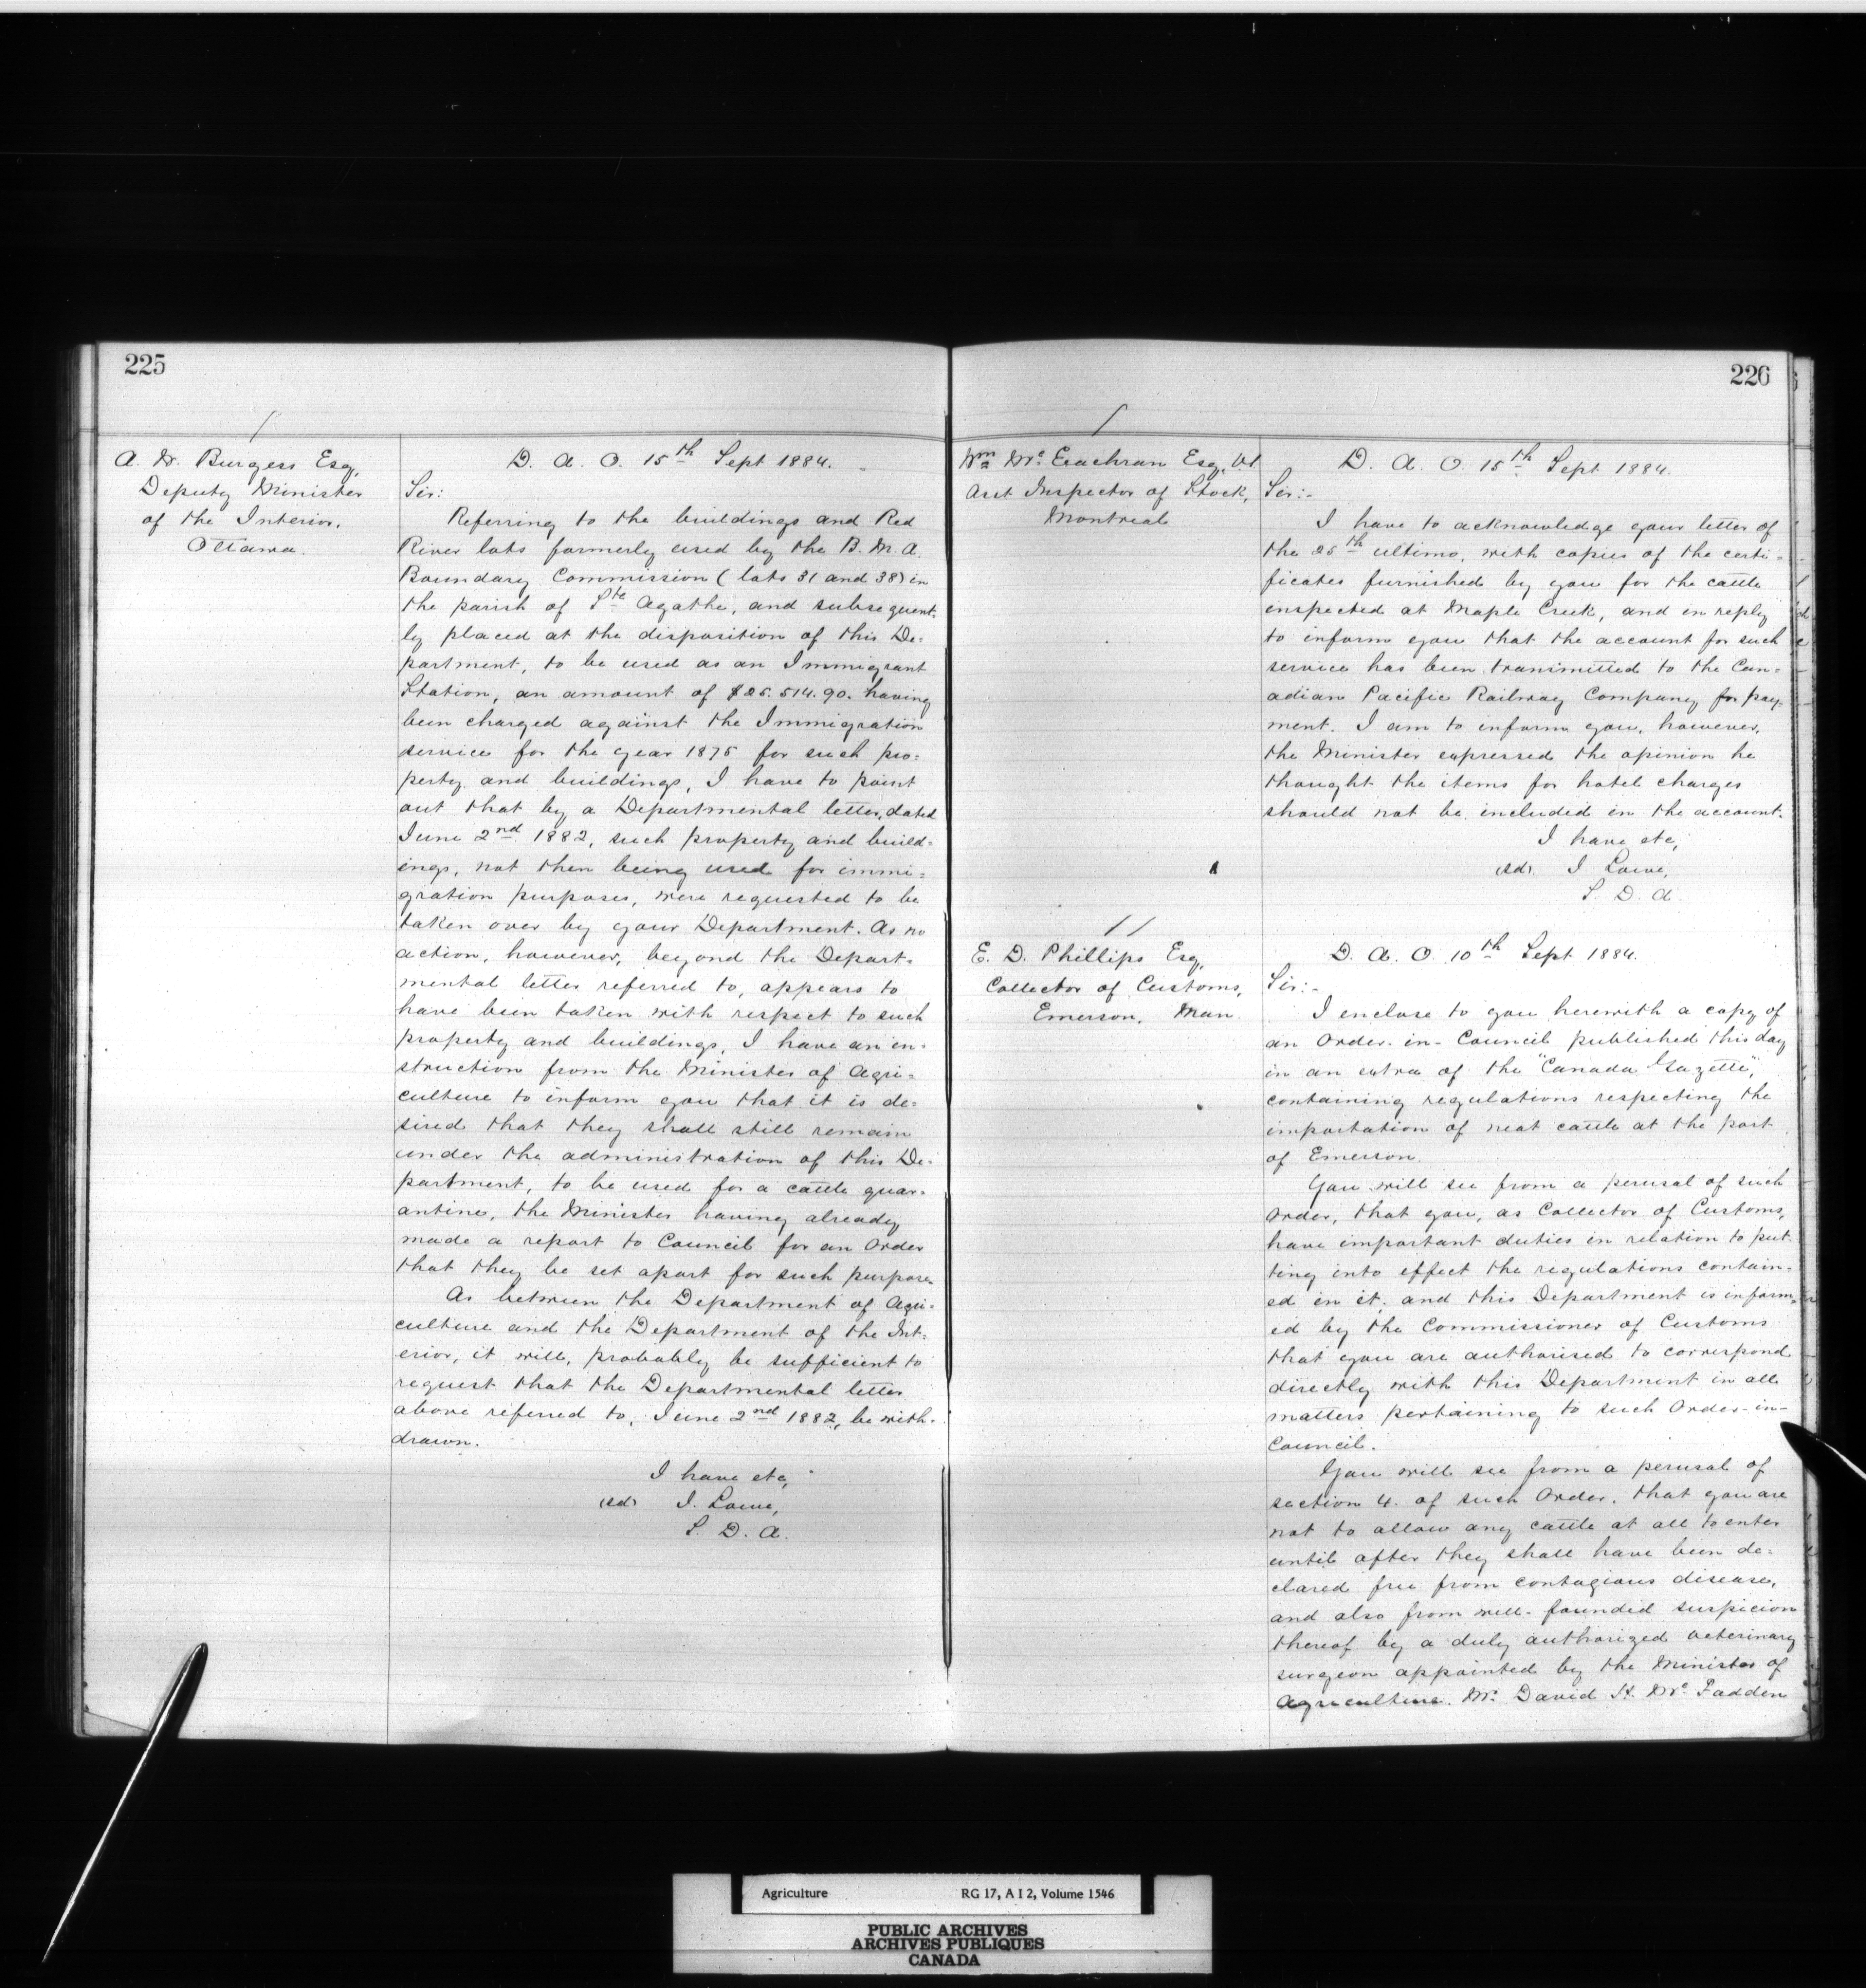 225
A. M. Burgess Esq,
Deputy Minister
of the Interior.
Ottawa.
D. A. O. 15th Sept 1884.
Sir:
Referring to the buildings and Red
River lots formerly used by the B. N. A.
Boundary Commission (lots 31 and 38) in
the parish of Ste Agathe, and subsequent-
ly placed at the disposition of this De-
partment, to be used as an Immigrant
Station, an amount of $25.514.90. having
been charged against the Immigration
service for the year 1875 for such pro-
perty and buildings, I have to point
out that by a Departmental letter, dated
June 2nd 1882, such property and build-
ings, not then being used for immi-
gration purposes, were requested to be
taken over by your Department. As no
action, however, beyond the Depart-
mental letter referred to, appears to
have been taken with respect to such
property and buildings, I have an in-
struction from the Minister of Agri-
culture to inform you that it is de-
sired that they shall still remain
under the administration of this De-
partment, to be used for a cattle quar-
antine, the Minister having already
made a report to Council for an Order
that they be set apart for such purpose.
As between the Department of Agri-
culture and the Department of the Int-
erior, it will, probably be sufficient to
request that the Departmental letter
above referred to, June 2nd 1882, be with-
drawn.
I have etc,
(sd) J. Lowe,
S. D. A.
226
Wm Mc Eachran Esq, V.S.
Asst Inspector of Stock,
Montreal
D. A. O. 15th Sept 1884.
Sir:-
I have to acknowledge your letter of
the 25th ultimo, with copies of the certi-
ficates furnished by you for the cattle
inspected at Maple Creek, and in reply
to inform you that the account for such
service has been transmitted to the Can-
adian Pacific Railway Company for pay-
ment. I am to inform you, however,
the Minister expressed the opinion he
thought the items for hotel charges
should not be included in the account.
I have etc,
(sd). J Lowe,
S. D. A.
E. D. Phillips Esq,
Collector of Customs,
Emerson, Man.
D. A. O. 10th Sept 1884.
Sir:-
I enclose to you herewith a copy of
an Order-in-Council published this day
in an extra of the "Canada Gazette",
containing regulations respecting the
importation of neat cattle at the port
of Emerson.
You will see from a perusal of such
Order, that you, as Collector of Customs,
have important duties in relation to put-
ting into effect the regulations contain-
ed in it; and this Department is inform-
ed by the Commissioner of Customs
that you are authorised to correspond
directly with this Department in all
matters pertaining to such Order-in-
Council.
You will see from a perusal of
section 4. of such Order, that you are
not to allow any cattle at all to enter
until after they shall have been de-
clared free from contagious disease,
and also from well-founded suspicion
thereof by a duly authorized veterinary
surgeon appointed by the Minister of
Agriculture. Mr. David H. Mc Fadden
Agriculture RG 17, A I 2, Volume 1546
PUBLIC ARCHIVES
ARCHIVES PUBLIQUES
CANADA